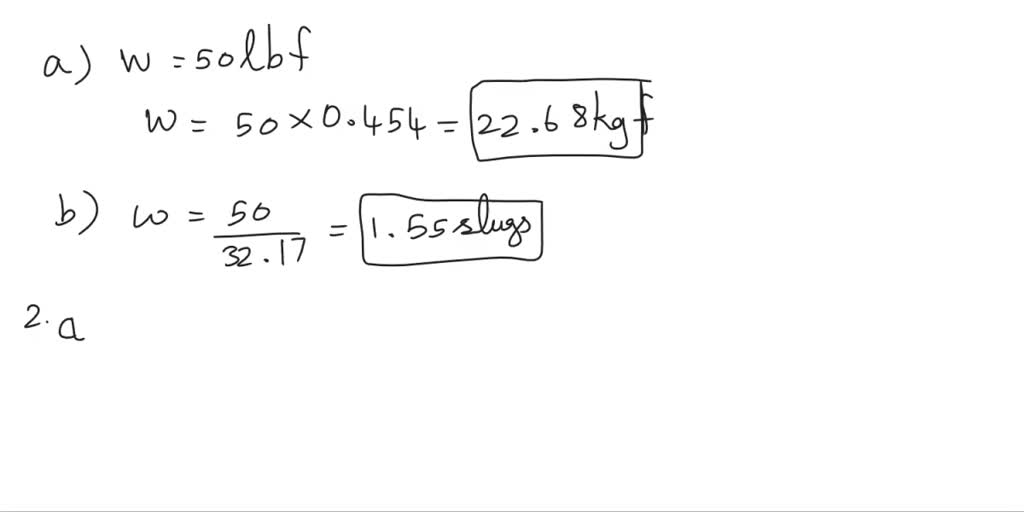 a) W = 50lbf
W = 50 × 0.454 = 22.68kgf
b) W = 50/32.17 = 1.55 slugs
2. a